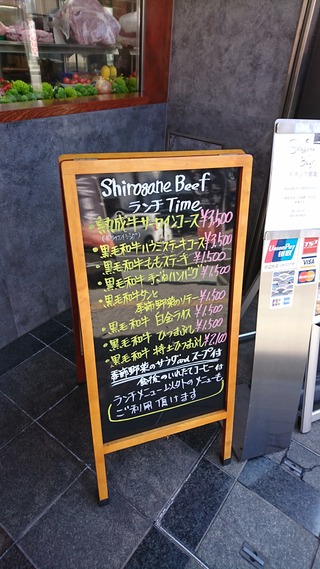 Shirogane Beef
ランチ Time
・熟成牛サーロインコース ¥3,500
・黒毛和牛ハラミステーキコース ¥3,500
・黒毛和牛ももステーキ ¥1,500
・黒毛和牛 手ごねハンバーグ ¥1,500
・黒毛和牛タンと
季節野菜のソテー ¥1,500
・黒毛和牛 白金ライス ¥1,500
・黒毛和牛 ひつまぶし ¥1,500
・黒毛和牛 特上ひつまぶし ¥2,100
季節野菜のサラダand スープ付
食後のいれたてコーヒー付
ランチメニュー以外のメニューも
ご利用頂けます
UnionPay
銀联
VISA
MasterCard